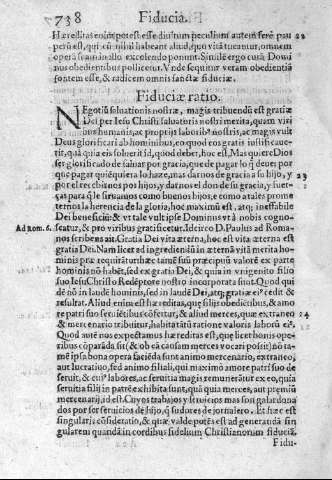 738 Fiducia.
Hæreditas enim potest esse diuitum peculium autem ferè pau 22
perū est, qui cū nihil habeant aliud, quo vitā tueantur, omnem
operā suam in illo excolendo ponunt. Simile ergo curā Domi
nus obedientibus pollicetur. Vnde sequitur veram obedientiā
fontem esse, & radicem omnis sanctæ fiduciæ.
Fiduciæ ratio.
NEgotiū saluationis nostræ, magis tribuendū est gratiæ
Dei per Iesu Christi saluatoris nostri merita, quam viri
bus humanis, ac proprijs laboribꝰ nostris, ac magis vult
Deus glorificari ab hominibus, eo quod eos gratis iustificaue-
rit, quā quia eis soluerit id, quod deber, hoc est, Mas quiere Dios
ser glorificado de saluar por gracia, que de pagar lo q̃ deue: por
que pagar quiēquiera lo haze, mas darnos de gracia a su hijo, y 23
por el recebirnos por hijos, y darnos el don de su gracia, y fuer-
ças para q̃ le siruamos como buenos hijos, e como a tales prome
ternos la herencia de la gloria, hoc maximū est, atq; ineffabile
Dei beneficiū: & vt tale vult ipse Dominus vt à nobis cogno-
Ad Rom. 6. scatur, & pro viribus gratificetur. Idcirco D. Paulus ad Roma-
nos scribens ait. Gratia Dei vita æterna, hoc est vita æterna est
gratia Dei. Nam licet ad ingrediēdū in æternā vitā merita ho-
minis præ requirātur hæc tamē suū præcipuū valorē ex parte
hominis nō habēt, sed ex gratia Dei, & quia in vnigenito filio
suo Iesu Christo Redēptore nostro incorporata sunt. Quod qui
dē nō in laudē hominis, sed in laudē Dei, atq; gratiæ eiꝰ cedit &
resultat. Aliud enim est hæreditas, quę filijs obedientibus, & amo
re patri suo seruiētibus cōfertur, & aliud merces, quæ extraneo 24
& mercenario tribuitur, habita tātū ratione valoris laborū eiꝰ.
Quod autē nos expectamus hæreditas est, quę licet bonis ope-
ribus cōparāda sit, & ob eā causam merces vocari possit, nō ta-
mē ipsa bona opera faciēda sunt animo mercenario, extraneo,
aut lucratiuo, sed animo filiali, qui maximò amore patri suo de
seruit, & cuiꝰ labores, ac seruitia magis remunerātur ex eo, quia
seruitia filij in patrē exhibita sunt, quā quia merces, aut premiū
mercenarij, id est. Cuyos trabajos y seruicios mas son galardona
dos por ser seruicios de hijo, q̃ sudores de jornalero. Et hæc est
singularis cōsideratio, & quæ valde potēs est ad generandā sin
gularem quandā in cordibus fidelium Christianorum fiduciā.
Fidu-